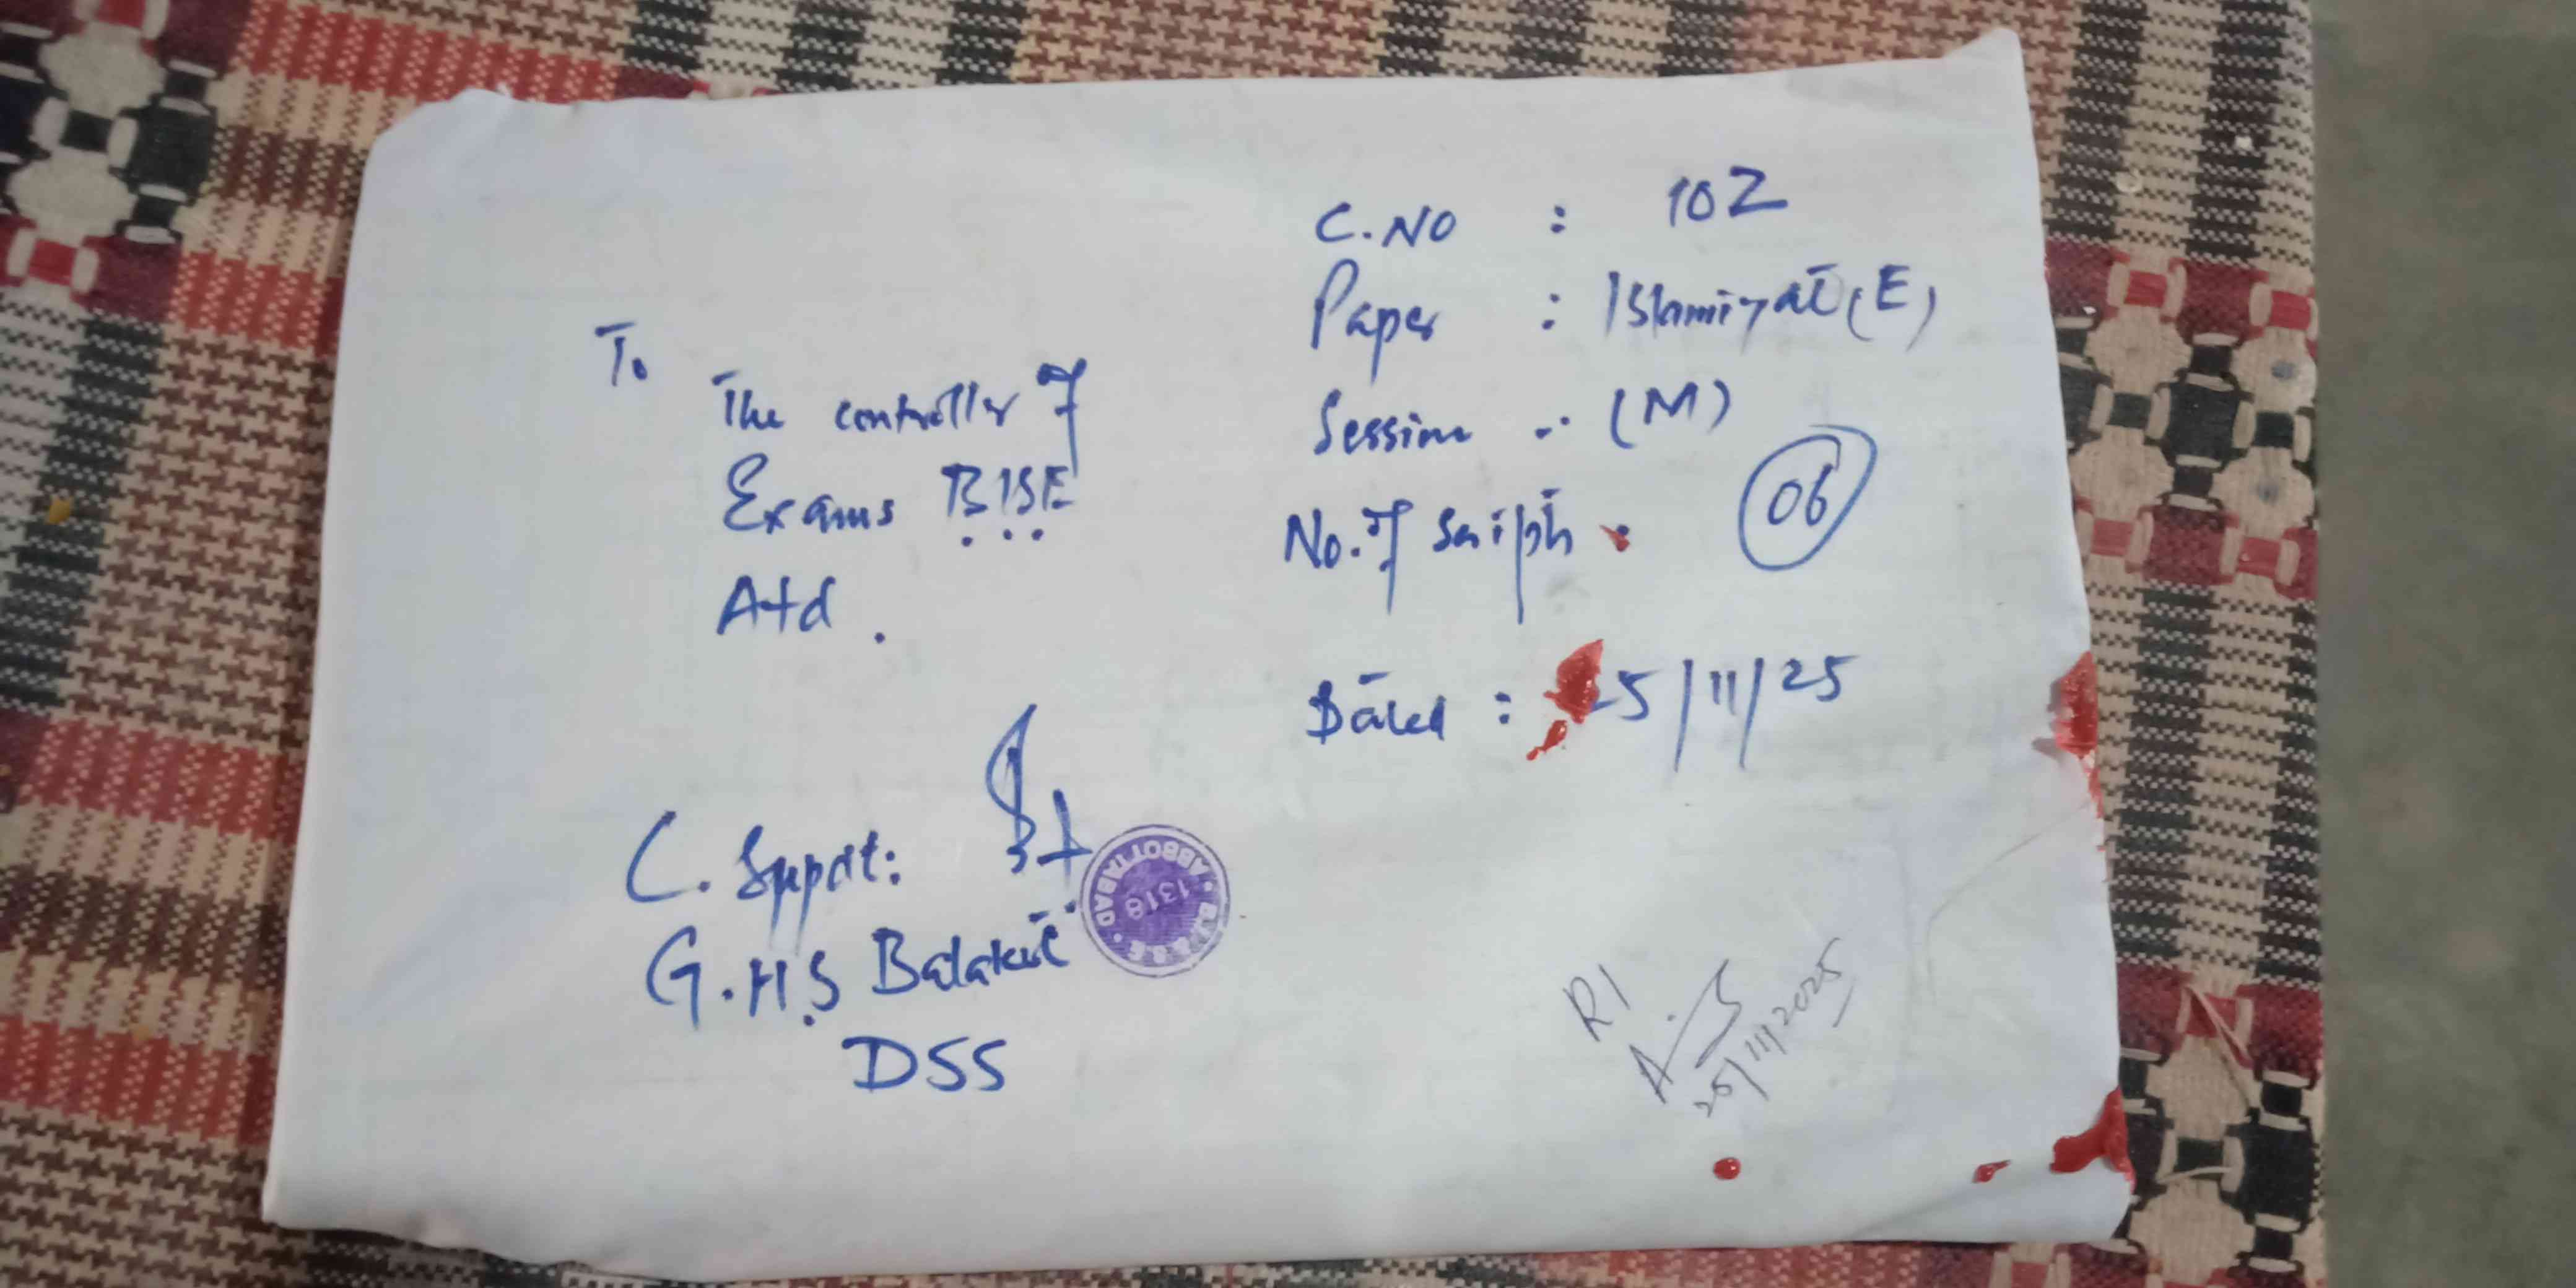 C.NO : 102
Paper : Islamiyat (E)
Session : (M)
No. of Scripts : 06
Dated : 25/11/25
To
The controller of
Exams B.I.S.E
Atd.
C. Suppdt:
G.H.S Balakot
DSS
ABBOTTABAD
1318
R1
A.S
25/11/2025